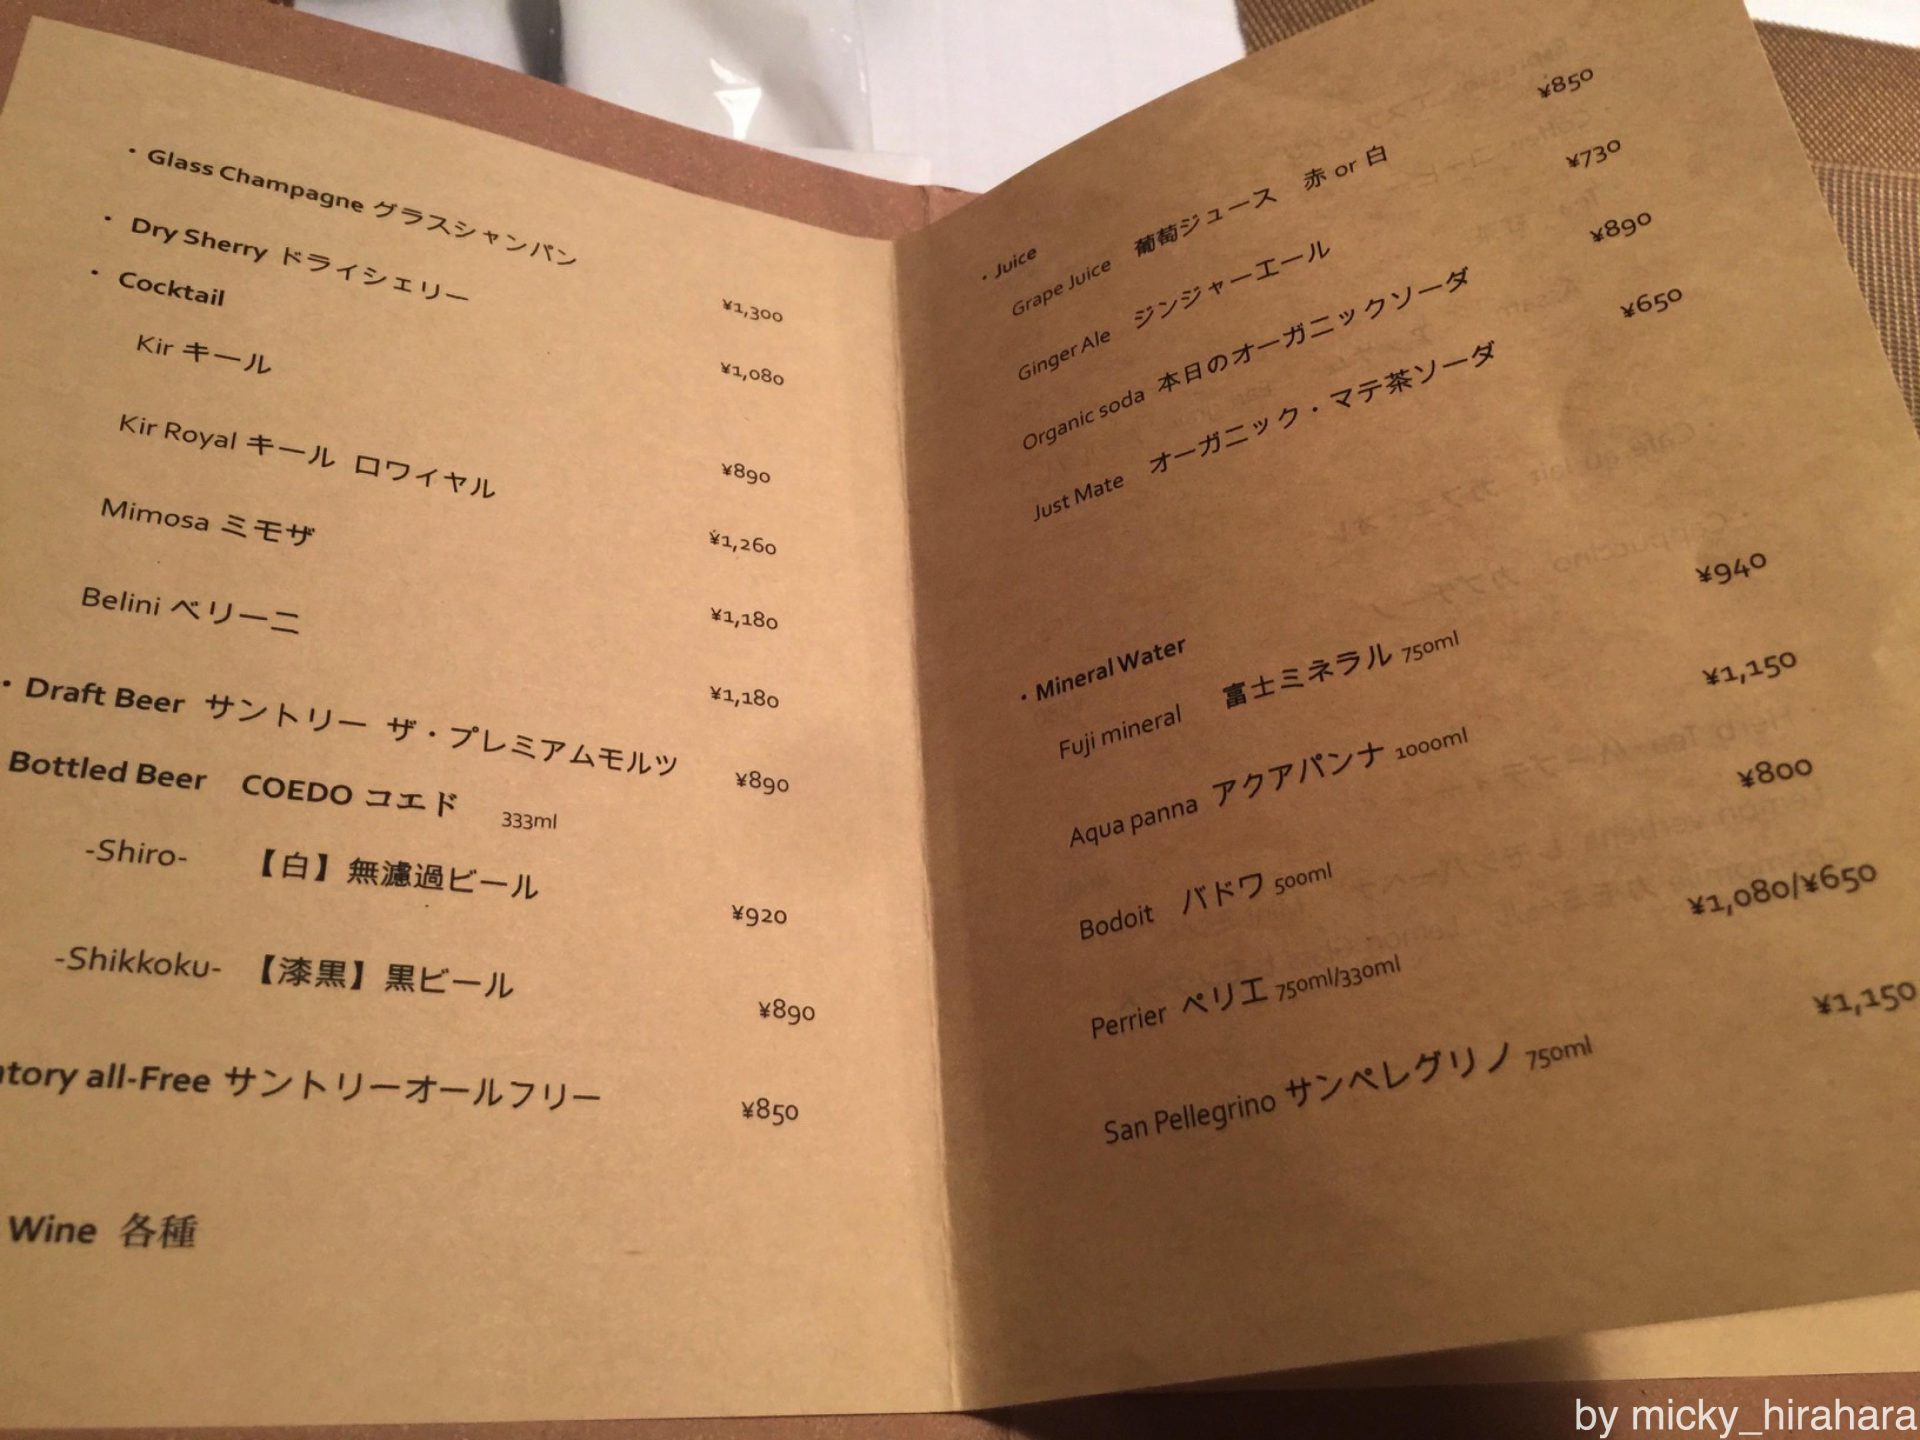 ・Glass Champagne グラスシャンパン ¥1,300
・Dry Sherry ドライシェリー ¥1,080
・Cocktail
Kir キール ¥890
Kir Royal キール ロワイヤル ¥1,260
Mimosa ミモザ ¥1,180
Belini ベリーニ ¥1,180
・Draft Beer サントリー ザ・プレミアムモルツ ¥890
Bottled Beer COEDO コエド 333ml
-Shiro- 【白】無濾過ビール ¥920
-Shikkoku- 【漆黒】黒ビール ¥890
ntory all-Free サントリーオールフリー ¥850
Wine 各種
・Juice
Grape Juice 葡萄ジュース 赤 or 白 ¥850
Ginger Ale ジンジャーエール ¥730
Organic soda 本日のオーガニックソーダ ¥890
Just Mate オーガニック・マテ茶ソーダ ¥650
・Mineral Water
Fuji mineral 富士ミネラル 750ml ¥940
Aqua panna アクアパンナ 1000ml ¥1,150
Bodoit バドワ 500ml ¥800
Perrier ペリエ 750ml/330ml ¥1,080/¥650
San Pellegrino サンペレグリノ 750ml ¥1,150
by micky_hirahara